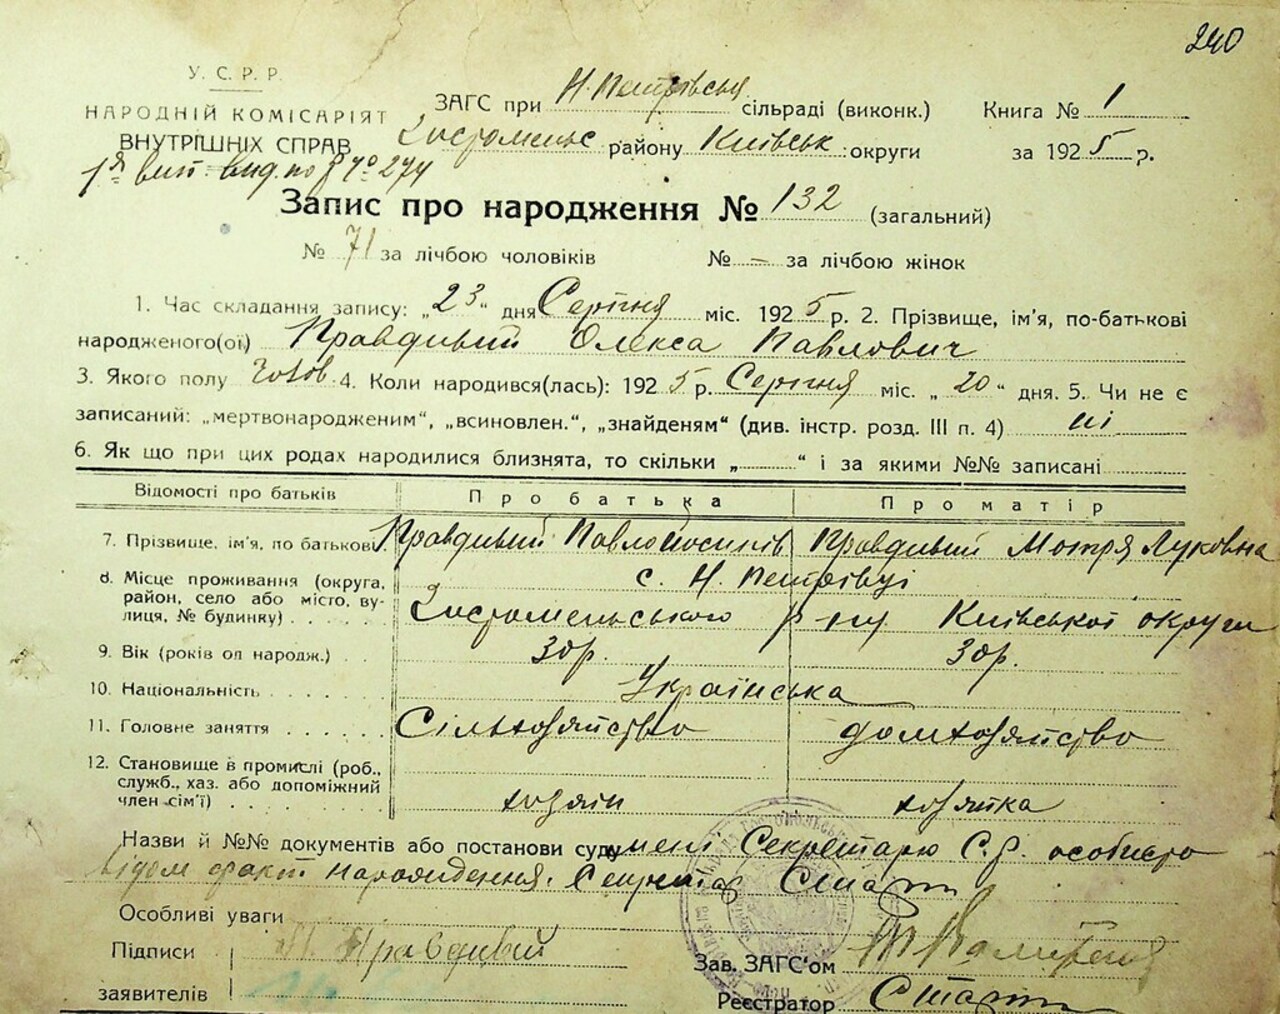 240
У. С. Р. Р.
НАРОДНІЙ КОМІСАРІЯТ
ВНУТРІШНІХ СПРАВ
ЗАГС при Н. Петрівській сільраді (виконк.)
Книга № 1
району Київськ округи
за 1925 р.
Запис про народження № 132 (загальний)
№ 71 за лічбою чоловіків № — за лічбою жінок
1. Час складання запису: „23“ дня Серпня міс. 1925 р. 2. Прізвище, ім'я, по-батькові
народженого(ої) Правдивий Олекса Павлович
3. Якого полу чолов. 4. Коли народився(лась): 1925 р. Серпня міс. „20“ дня. 5. Чи не є
записаний: „мертвонародженим“, „всиновлен.“, „знайденям“ (див. інстр. розд. III п. 4) ні
6. Як що при цих родах народилися близнята, то скільки „ “ і за якими №№ записані
Відомості про батьків Про батька Про матір
7. Прізвище, ім'я, по батькові. Правдивий Павло Йосипів Правдивий Мотря Луковна
8. Місце проживання (округа, район, село або місто, вулиця, № будинку) с. Н. Петрівці
Гостомельського р-ну Київської округи
9. Вік (років од народж.) 30 р. 30 р.
10. Національність Українська
11. Головне заняття Сільхозяйство домхозяйство
12. Становище в промислі (роб., служб., хаз. або допоміжний член сім'ї) хозяін хозяйка
Назви й №№ документів або постанови суду мені Секретарю С.Р. особисто
відом факт народження. Секретар
Особливі уваги
Підписи П. Правдивий
Зав. ЗАГС'ом
заявителів
Реєстратор